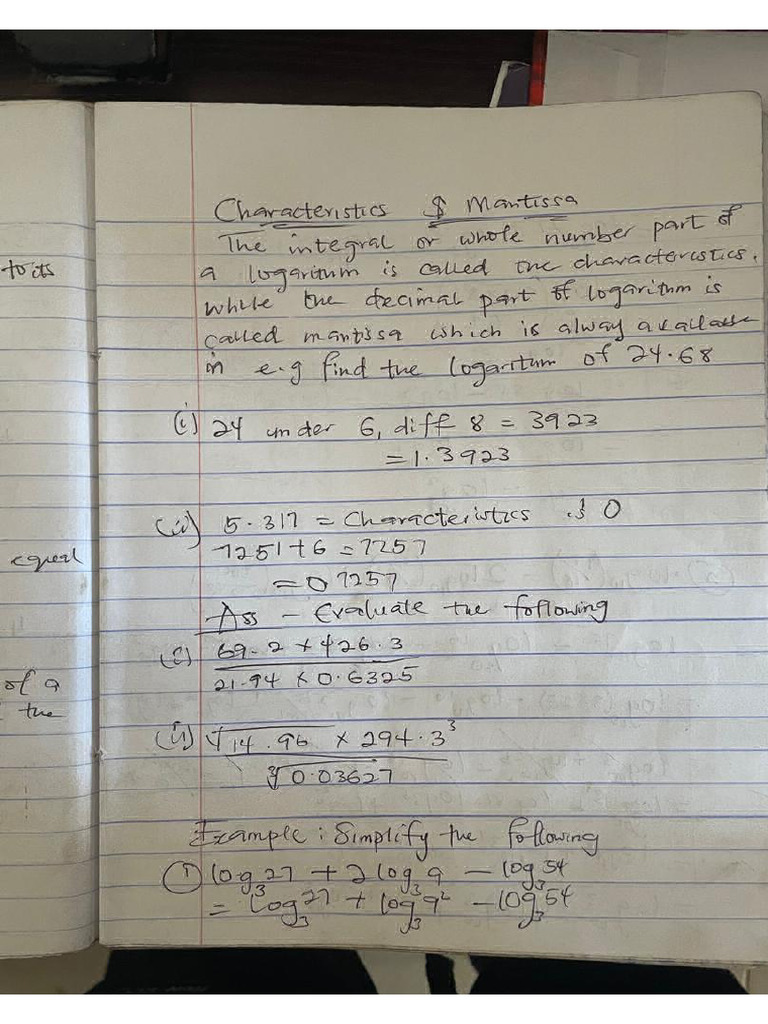 Characteristics $ Mantissa
The integral or whole number part of
to its
a logaritum is called the characteristics.
while the decimal part of logaritm is
called mantissa which is alway available
in e.g find the logaritum of 24.68
(i) 24 under 6, diff 8 = 3923
= 1.3923
(ii) 5.317 = Characteristics is 0
equal
7251 + 6 = 7257
= 0 7257
Ass - Evaluate the following
(i) 69.2 x 426.3
21.94 x 0.6325
of a
the
(ii) √14.96 x 294.3³
∛0.03627
Example: Simplify the following
① log₃27 + 2log₃9 - log₃54
= log₃27 + log₃9² - log₃54